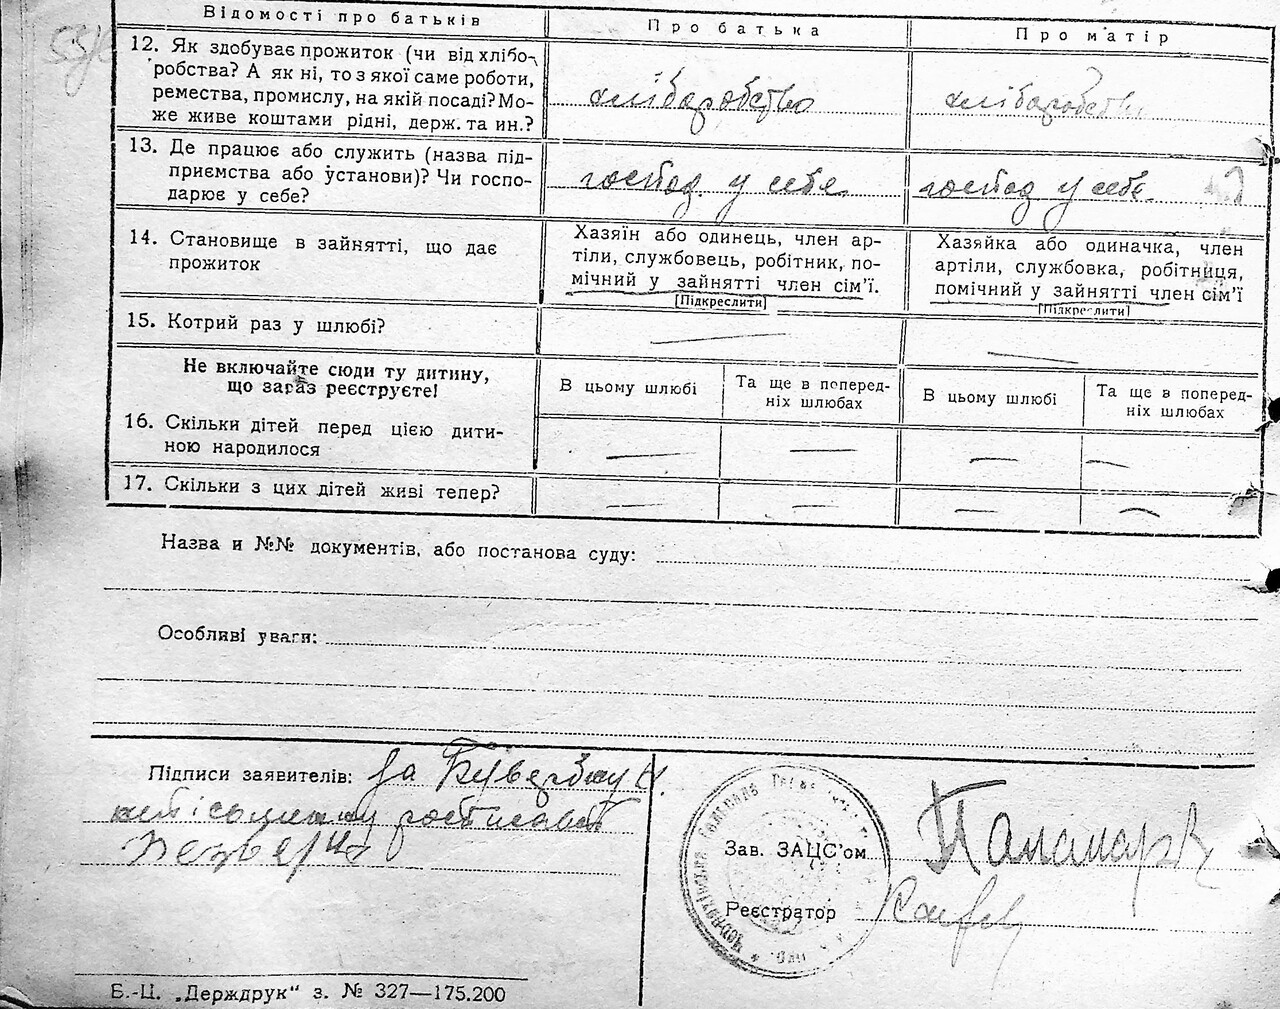 Відомості про батьків
Про батька
Про матір
12. Як здобуває прожиток (чи від хлібо-
робства? А як ні, то з якої саме роботи,
ремества, промислу, на якій посаді? Мо-
же живе коштами рідні, держ. та ин.?
хліборобство
хліборобство
13. Де працює або служить (назва під-
приємства або установи)? Чи госпо-
дарює у себе?
господ. у себе
господ у себе.
14. Становище в зайнятті, що дає
прожиток
Хазяїн або одинець, член ар-
тіли, службовець, робітник, по-
мічний у зайнятті член сім'ї.
[Підкреслити]
Хазяйка або одиначка, член
артіли, службовка, робітниця,
помічний у зайнятті член сім'ї
[Підкреслити]
15. Котрий раз у шлюбі?
Не включайте сюди ту дитину,
що зараз реєструєте!
В цьому шлюбі
Та ще в поперед-
ніх шлюбах
В цьому шлюбі
Та ще в поперед-
ніх шлюбах
16. Скільки дітей перед цією дити-
ною народилося
17. Скільки з цих дітей живі тепер?
Назва и №№ документів, або постанова суду:
Особливі уваги:
Підписи заявителів: за
Зав. ЗАЦС'ом
Реєстратор
Б.-Ц. „Держдрук" з. № 327—175.200